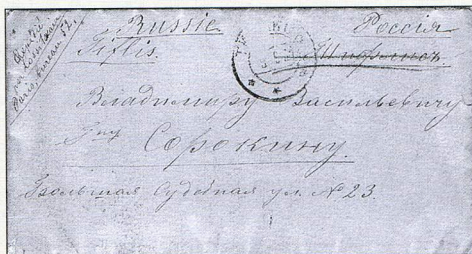 Russie Россия
Tiflis. Тифлисъ.
Владимиру Васильевичу
Гну Сорокину.
Большая Судебная ул. № 23.